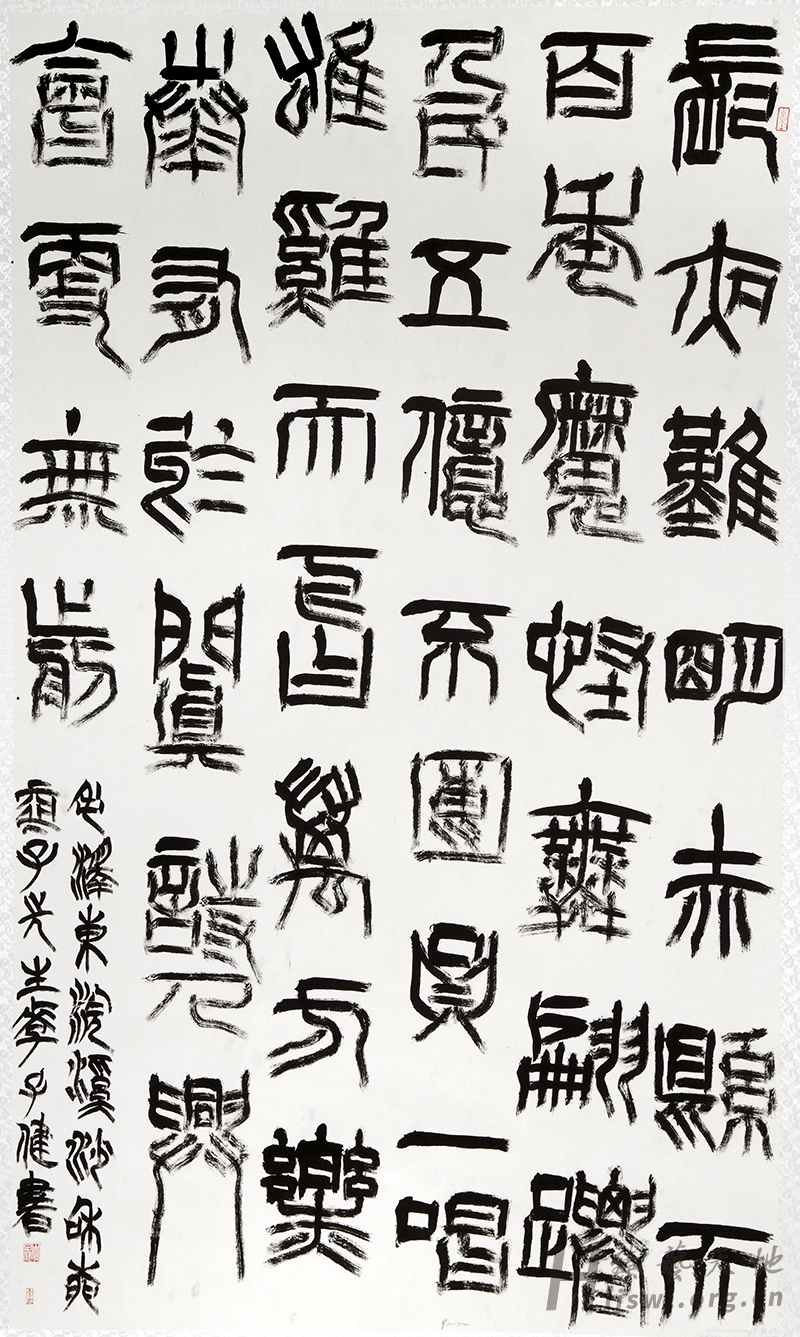 長夜難明赤縣天
百年魔怪舞翩躚
人民五億不團圓一唱
雄雞天下白萬方樂
奏有於闐詩人興
會更無前
毛澤東浣溪沙和柳
亞子先生李子健書